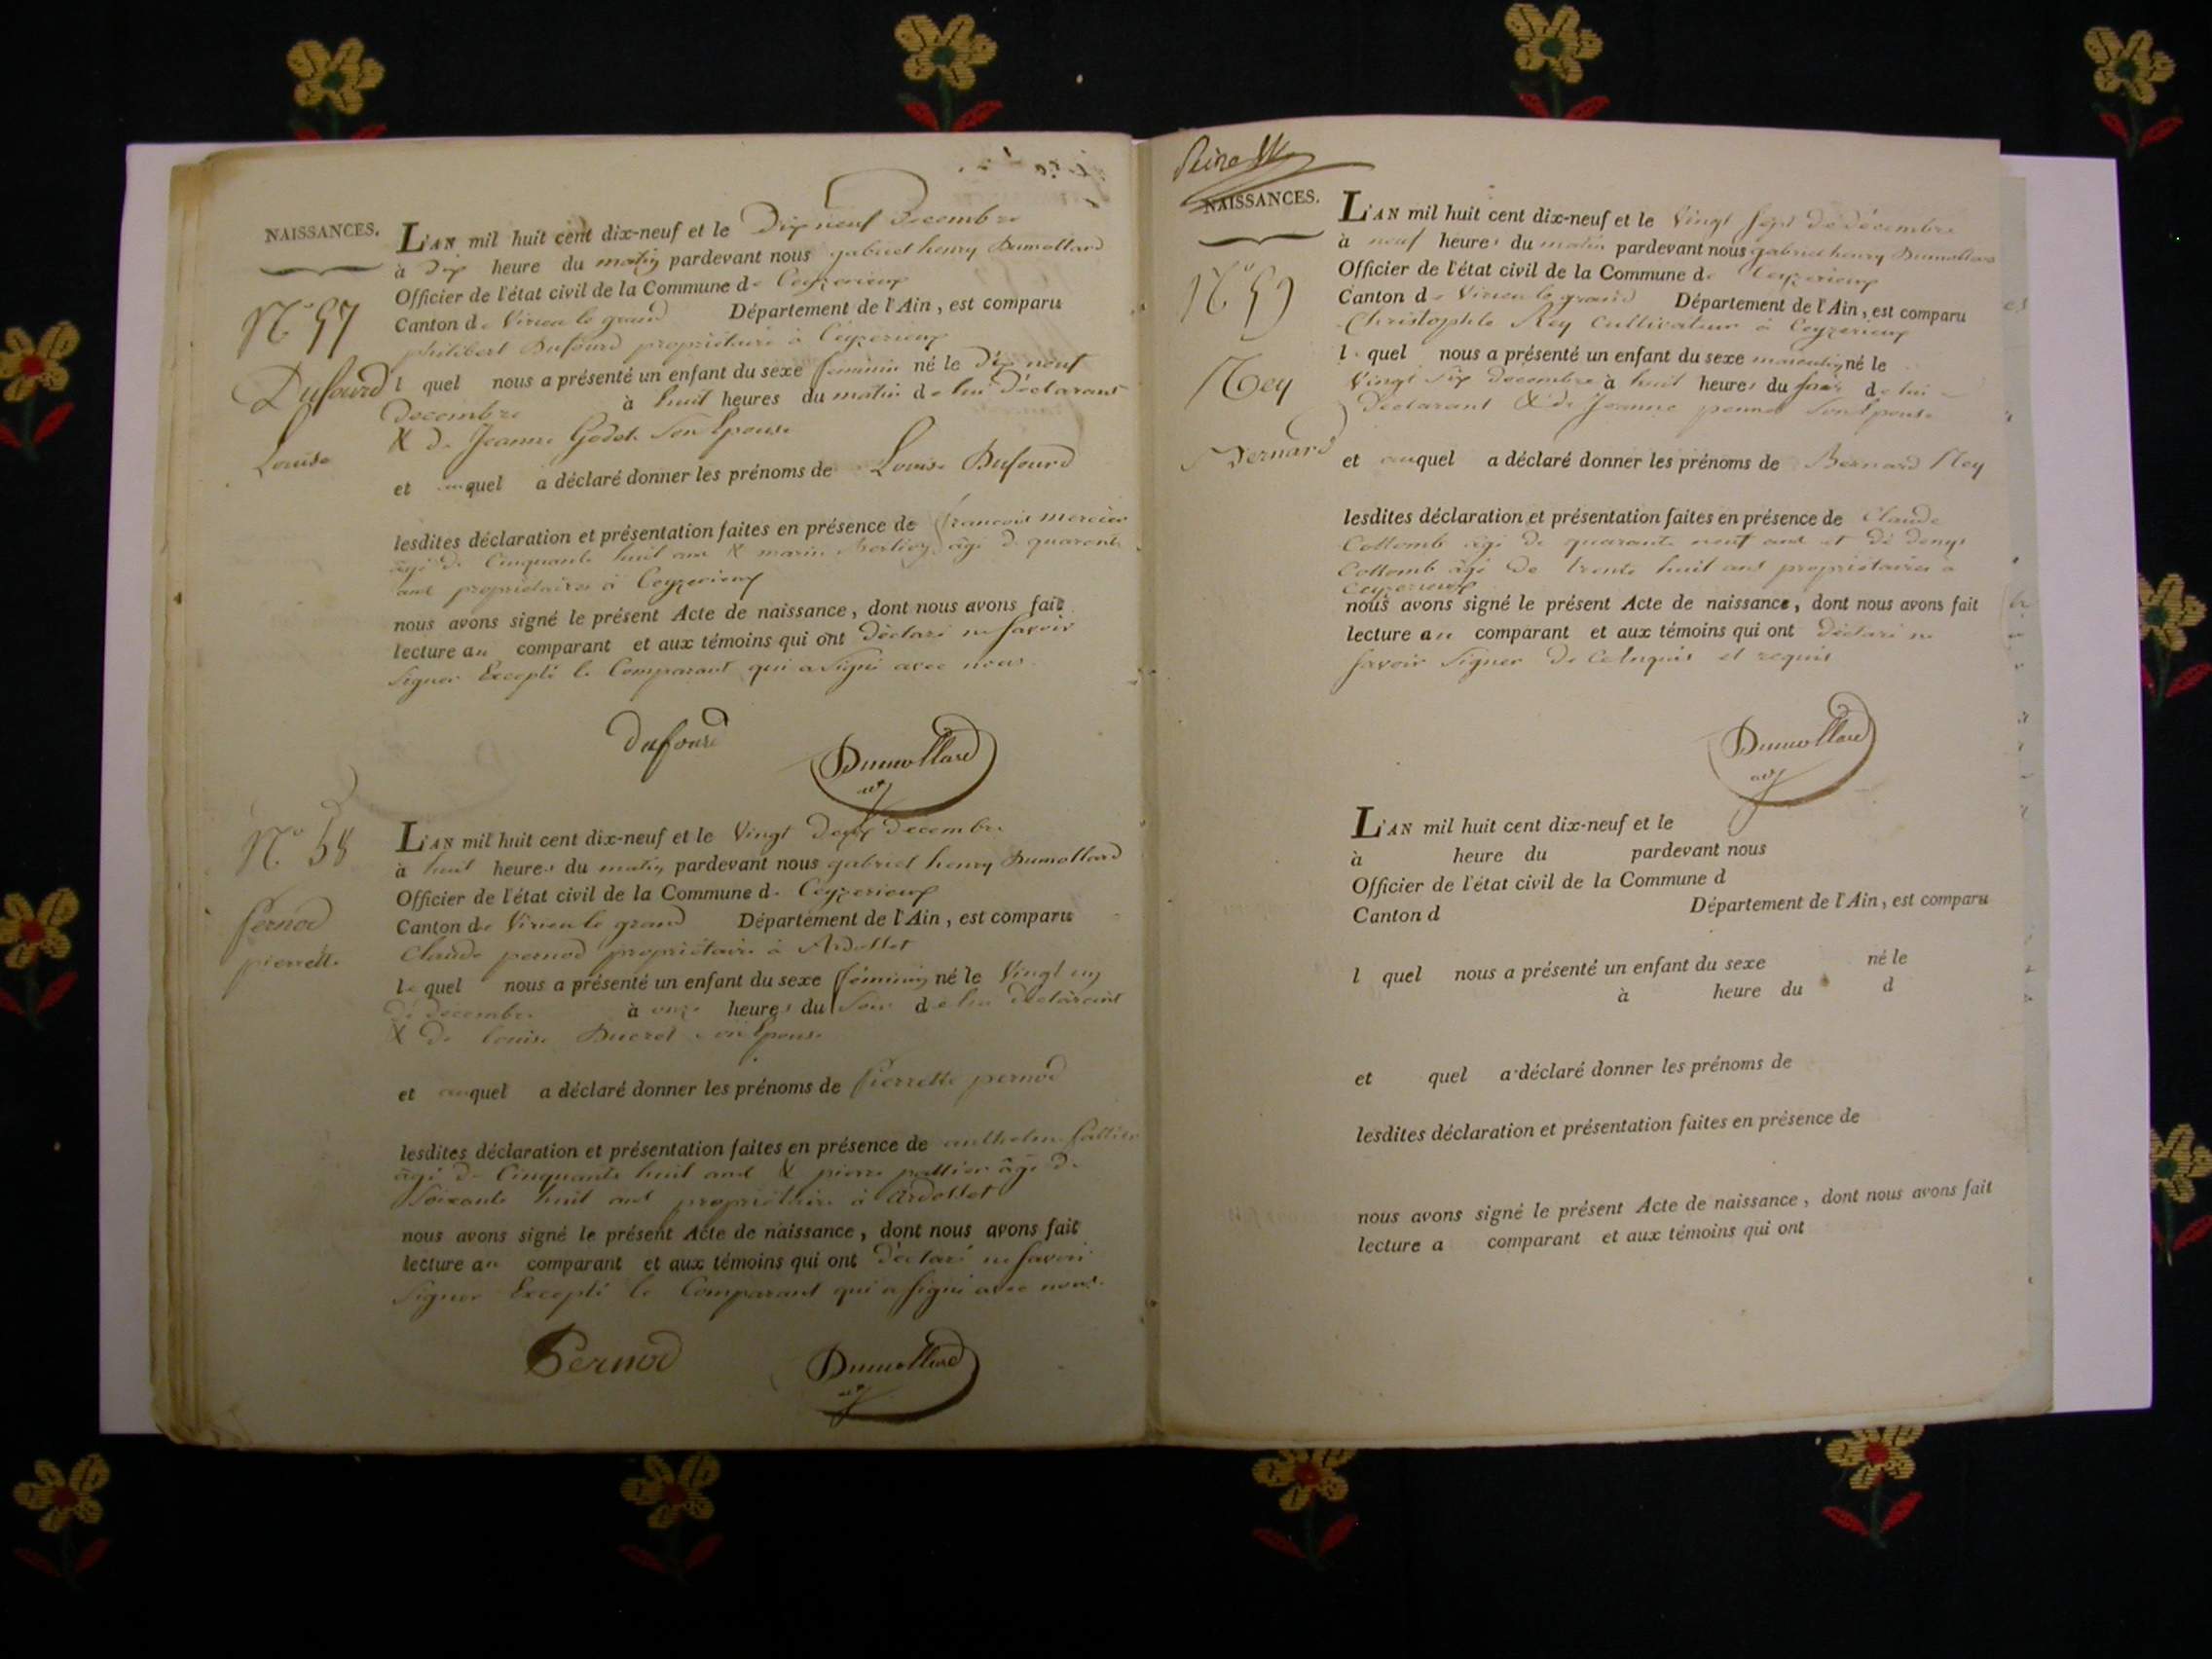 NAISSANCES.
N.° 57
Dufourd
Louise
L'AN mil huit cent dix-neuf et le Dix neuf Decembre
à Dix heure du matin pardevant nous gabriel henry Dumollard
Officier de l'état civil de la Commune de Ceyzerieux
Canton de Virieu le grand Département de l'Ain, est comparu
philibert Dufourd propriétaire à Ceyzerieux
l quel nous a présenté un enfant du sexe feminin né le Dix neuf
Decembre à huit heures du matin de lui déclarant
& De Jeanne Godet Son Epouse
et auquel a déclaré donner les prénoms de Louise Dufourd
lesdites déclaration et présentation faites en présence de francois mercier
âgé de Cinquante huit ans & marin âgé de quarante
ans propriétaires à Ceyzerieux
nous avons signé le présent Acte de naissance, dont nous avons fait
lecture au comparant et aux témoins qui ont déclaré ne savoir
Signer Excepté le Comparant qui a Signé avec nous.
Dufourd
Dumollard
N.° 58
Pernod
pierrette
L'AN mil huit cent dix-neuf et le Vingt Deux Decembre
à huit heures du matin pardevant nous gabriel henry Dumollard
Officier de l'état civil de la Commune de Ceyzerieux
Canton de Virieu le grand Département de l'Ain, est comparu
Claude pernod propriétaire à Ardosset
le quel nous a présenté un enfant du sexe féminin né le Vingt un
de decembre à onze heures du Soir de lui déclarant
& De Louise Ducret Son Epouse
et auquel a déclaré donner les prénoms de Pierrette pernod
lesdites déclaration et présentation faites en présence de anthelme
âgé de Cinquante huit ans & pierre pattier âgé De
Soixante huit ans propriétaire à Ardosset
nous avons signé le présent Acte de naissance, dont nous avons fait
lecture au comparant et aux témoins qui ont déclaré ne savoir
Signer Excepté le Comparant qui a signé avec nous.
Pernod
Dumollard
NAISSANCES.
N.° 59
Rey
Bernard
L'AN mil huit cent dix-neuf et le Vingt Sept De décembre
à neuf heures du matin pardevant nous gabriel henry Dumollard
Officier de l'état civil de la Commune de Ceyzerieux
Canton de Virieu le grand Département de l'Ain, est comparu
Christophle Rey Cultivateur à Ceyzerieux
l quel nous a présenté un enfant du sexe masculin né le
Vingt Six Decembre à huit heures du soir de lui
Déclarant & De Jeanne Son Epouse
et auquel a déclaré donner les prénoms de Bernard Rey
lesdites déclaration et présentation faites en présence de Claude
Collomb âgé de quarante neuf ans et de denys
Collomb âgé De trente huit ans propriétaires à
Ceyzerieux
nous avons signé le présent Acte de naissance, dont nous avons fait
lecture au comparant et aux témoins qui ont déclaré ne
savoir Signer De Ce Enquis et requis
Dumollard
L'AN mil huit cent dix-neuf et le
à heure du pardevant nous
Officier de l'état civil de la Commune d
Canton d Département de l'Ain, est comparu
l quel nous a présenté un enfant du sexe né le
à heure du d
et quel a déclaré donner les prénoms de
lesdites déclaration et présentation faites en présence de
nous avons signé le présent Acte de naissance, dont nous avons fait
lecture a comparant et aux témoins qui ont